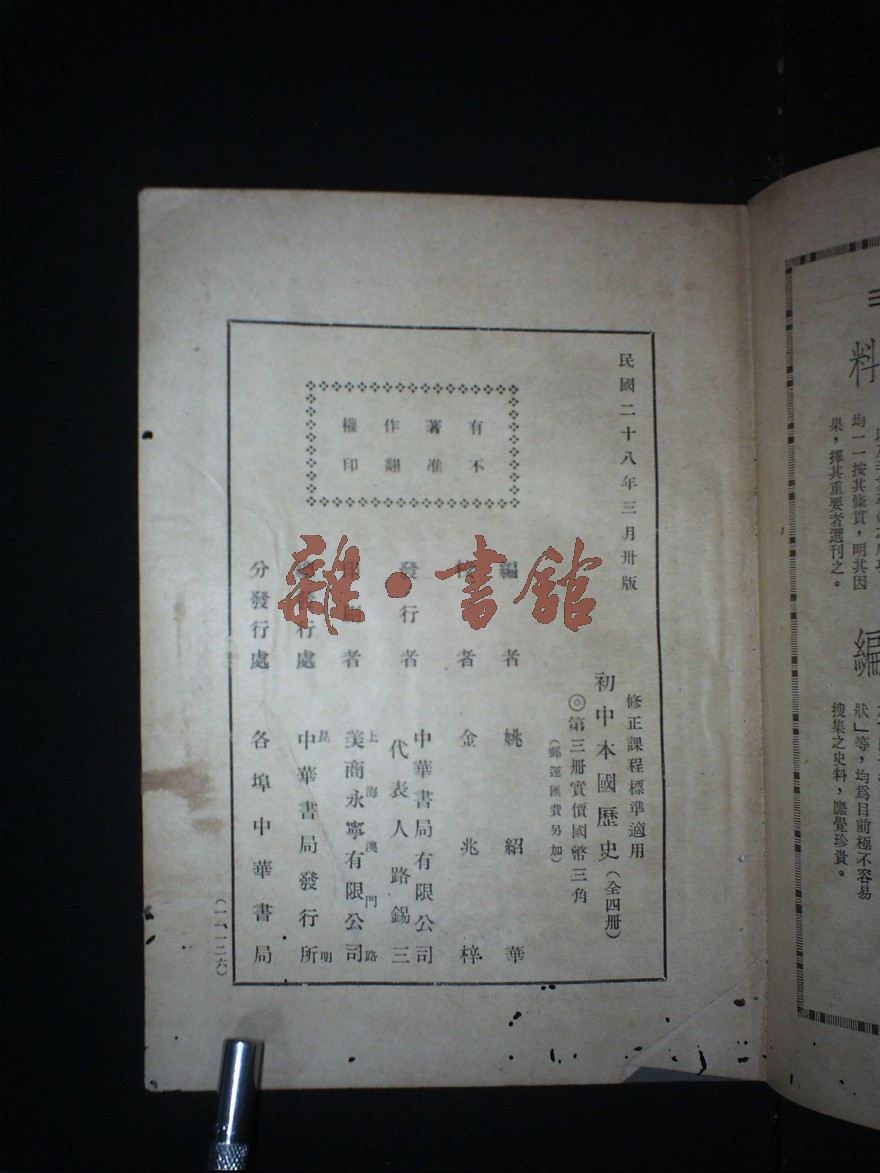 民國二十八年三月卅版
修正課程標準適用
初中本國歷史(全四册)
◎第三册實價國幣三角
(郵運匯費另加)
有著作權
不准翻印
編者 姚紹華
校者 金兆梓
發行者 中華書局有限公司
代表人路錫三
印刷者 上海澳門路
美商永寧有限公司
總發行處 昆明
中華書局發行所
分發行處 各埠中華書局
(一一一二六)
雜·書館
料
均一一按其條貫,明其因
果,擇其重要者選刊之。
編
狀」等,均爲目前極不容易
搜集之史料,彌覺珍貴。